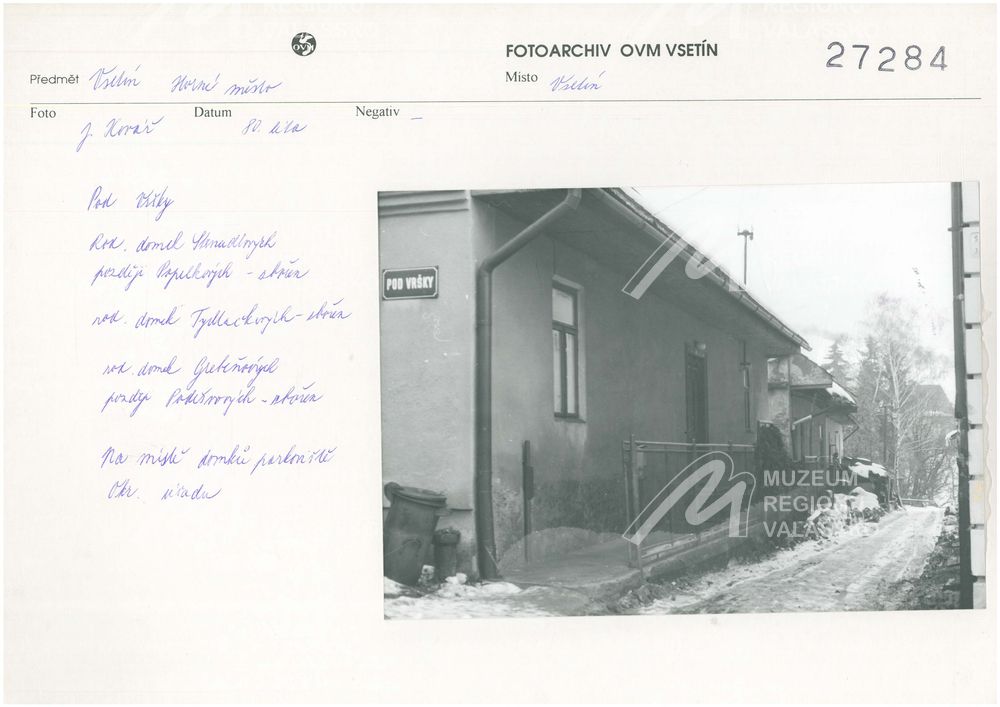 OVM
FOTOARCHIV OVM VSETÍN
27284
Předmět Vsetín Horní město
Místo Vsetín
Foto J. Kovář
Datum 80. léta
Negativ –
Pod Vršky
Rod. domek
později Popelkových – zbořen
rod. domek Tydlačkových – zbořen
rod. domek Grebeňových
později – zbořen
Na místě domků parkoviště
Okr. úřadu
POD VRŠKY
MUZEUM
REGIONU
VALAŠSKO